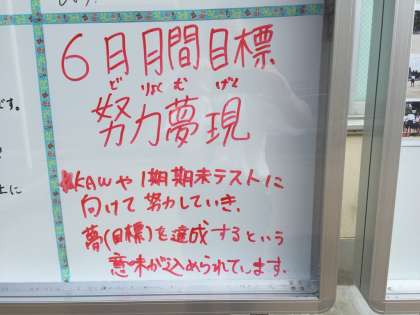 6月月間目標
どりょくむげん
努力夢現
KAWや1期期末テストに
向けて努力していき、
夢(目標)を達成するという
意味が込められています。
です。
に